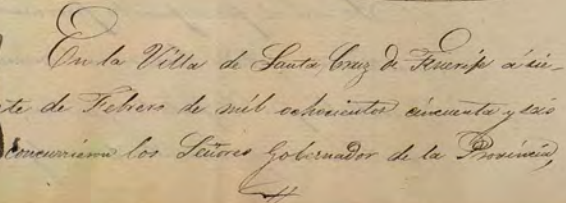 En la Villa de Santa Cruz de Tenerife á sie-
te de Febrero de mil ochocientos cincuenta y seis
concurrieron los Señores Gobernador de la Provincia,